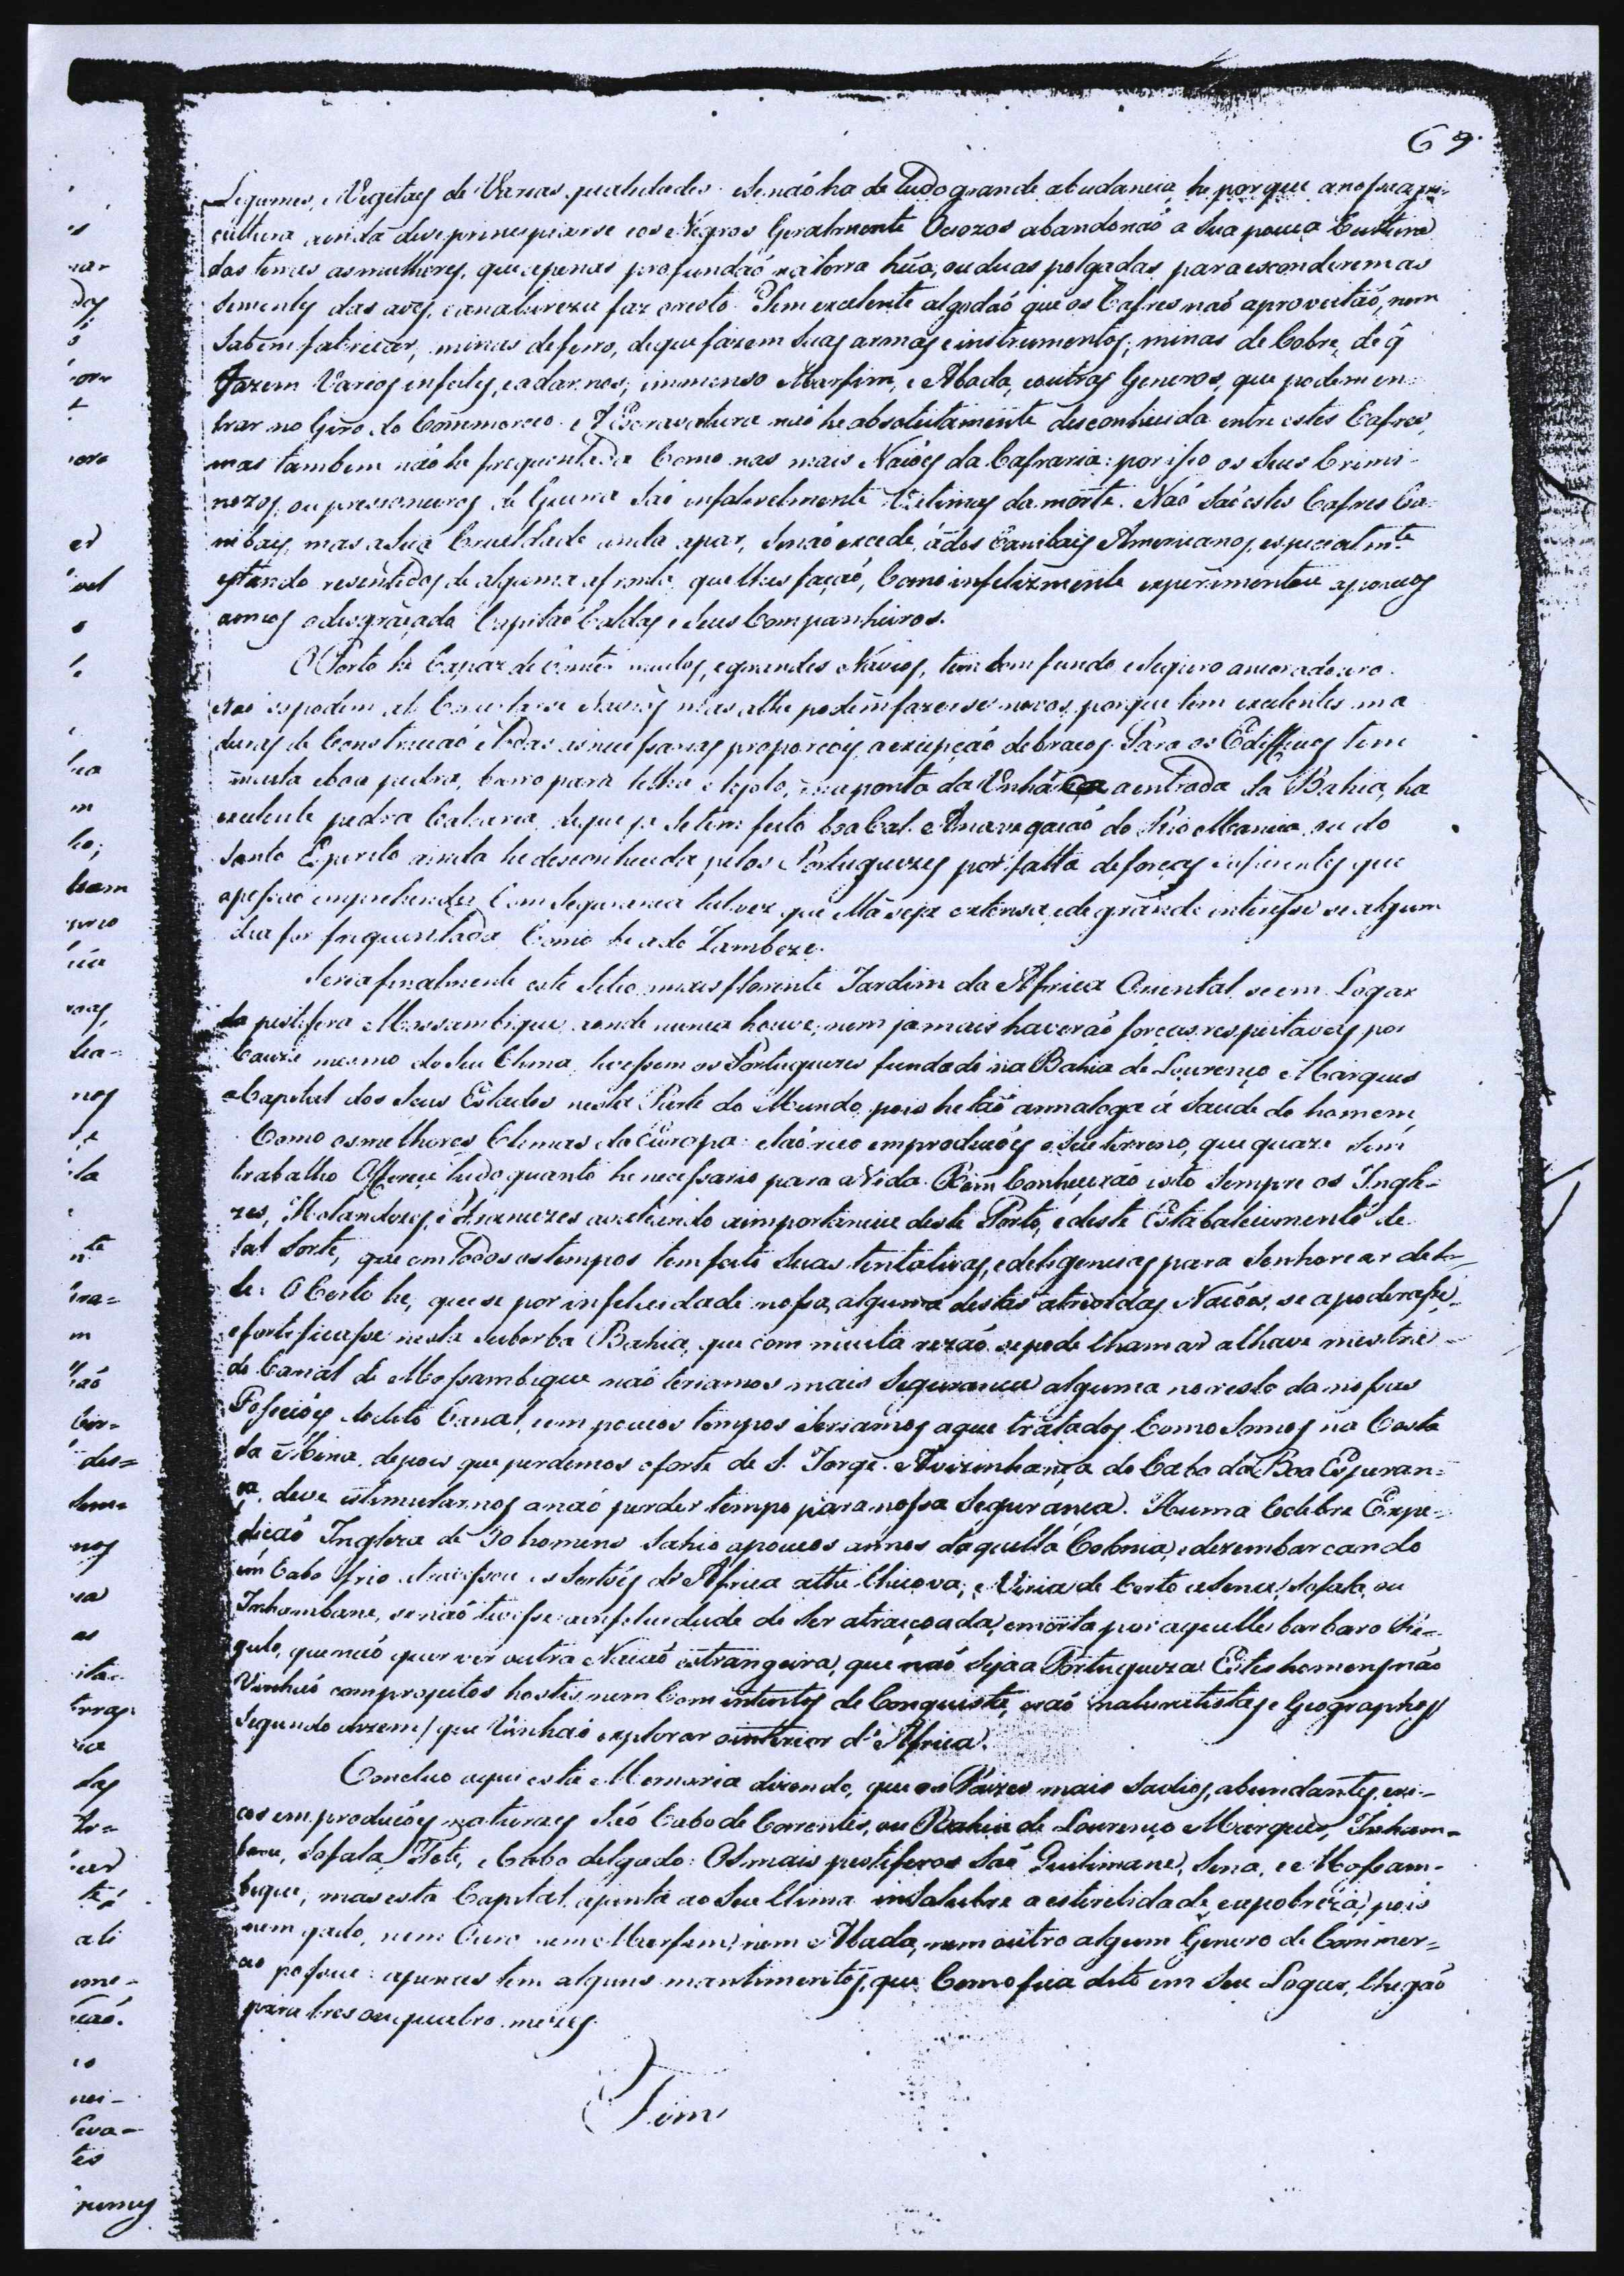 69.
Legumes, Vegitaes de Varias qualidades. e se não ha de tudo grande abudancia, he porque a nossa agri-
cultura ainda deve principiarse e os Negros Geralmente Ociozos abandonão a Sua pouca Cultura
das terras as mulheres, que apenas profundão na terra hũa, ou duas polgadas, para esconderem as
Sementes das aves, e a natureza faz o resto. Tem excelente algodão que os Cafres não aproveitão, nem
Sabem fabricar, minas de ferro, de que fazem Suas armas e instrumentos; minas de Cobre, de q̃
fazem Varios enfeites, e adarnos; immenso Marfim, e Abada, e outros Generos, que podem en-
trar no Giro do Commercio. A Escravatura não he absolutamente desconhecida entre estes Cafres,
mas tambem não he frequentada Como nas mais Naçoẽs da Cafraria: por isso os Seus Crimi-
nozos, ou presioneiros de Guerra São infalivelmente Victimas da morte. Não São estes Cafres Ca-
nibais, mas a Sua Crueldade anda apar, Senão excede, á dos Canibais Americanos, especialm.te
estando resentidos de alguma afronta que lhes fação, Como infelizmente experimentou a poucos
annos o desgraçado Capitão Caldas e Seus Companheiros.
O Porto he Capaz de Conter muitos, e grandes Navios, tem bom fundo e Seguro ancoradouro.
Não só podem ali Concertarse Navios mas athe podem fazerse novos, porque tem excelentes ma
deiras de Construcção e todas as necessarias proporçoẽs, a excepção de braços. Para os Edifficios tem
muita e boa pedra, barro para telha e tejolo, e na ponta da Unhaca a entrada da Bahia, ha
excelente pedra Calcaria, de que ja se tem feito boa Cal. A navegação do Rio Manica, ou do
Santo Espirito ainda he desconhecida pelos Portuguezes por falta de forças suficientes que
a possão emprehender Com Segurança talvez que ella seja extensa, e de grande interesse se algum
dia for frequentada Como he a do Zambeze.
Seria finalmente este Sitio o mais florente Jardim da Africa Oriental se em Logar
da pestifera Mossambique, aonde nunca houve, nem jamais haverão forças respeitaveis, por
Cauza mesmo do Seu Clima, tivessem os Portuguezes fundado na Bahia de Lourenço Marques
a Capital dos Seus Estados nesta Parte do Mundo, pois he tão annaloga á Saude do homem,
Como os melhores Climas da Europa: e tão rico em producçoẽs o Seu terreno, que quaze Sem
trabalho Offerece tudo quanto he necessario para a Vida. Bem Conhecerão isto Sempre os Ingle-
zes, Holandezes, e Francezes avaliando a importancia deste Porto, e deste Estabalecimento de
tal Sorte, que em todos os tempos tem feito Suas tentativas, e deligencias para Senhorear del-
le: O Certo he, que se por infelicidade nossa, alguma destas atrevidas Naçoẽs, se apoderasse
e fortificasse nesta suberba Bahia, que com muita rezão se pode Chamar a Chave mestra
do Canal de Mossambique não teriamos mais Segurança alguma no resto da nossas
Possessoẽs do dito Canal, e em poucos tempos Seriamos aqui tratados Como Somos na Costa
da Mina, depois que perdemos o forte de S. Jorge. A vizinhança do Cabo da Boa Esperan-
ça, deve estimularnos a não perder tempo para nossa Segurança. Huma Celebre Expe-
dição Ingleza de 30 homens Sahio a poucos annos daquella Colonia, e dezembarcando
em Cabo frio atravessou os Sertoẽs d'Africa athe Chicova, e Viria de Certo a Sena, Sofala, ou
Inhambane, se não tivesse a infelicidade de Ser atraiçoada, e morta por aquelle barbaro Re-
gulo, que não quer ver outra Nação estrangeira, que não Seja a Portugueza. Estes homens não
Vinhão com propzitos hostis, nem Com intentos de Conquista, erão naturalistas e Geographos
Segundo dizem/ que Vinhão explorar o interior d'Africa.
Concluo aqui esta Memoria dizendo, que os Paizes mais Sadios, abundantes, e ri-
cos em producçoẽs naturaes São Cabo de Correntes, ou Bahia de Lourenço Marques, Inham-
bane, Sofala, Tete, e Cabo delgado: Os mais pestiferos São Quilimane, Sena, e Mossam-
bique, mas esta Capital ajunta ao Seu Clima insalubre a esterelidade, e a pobreza, pois
nem gado, nem Ouro nem Marfim, nem Abada, nem outro algum Genero de Commer-
cio possue: apenas tem alguns mantimentos, que Como fica dito em Seu Logar, Chegão
para tres ou quatro mezes.
Fim